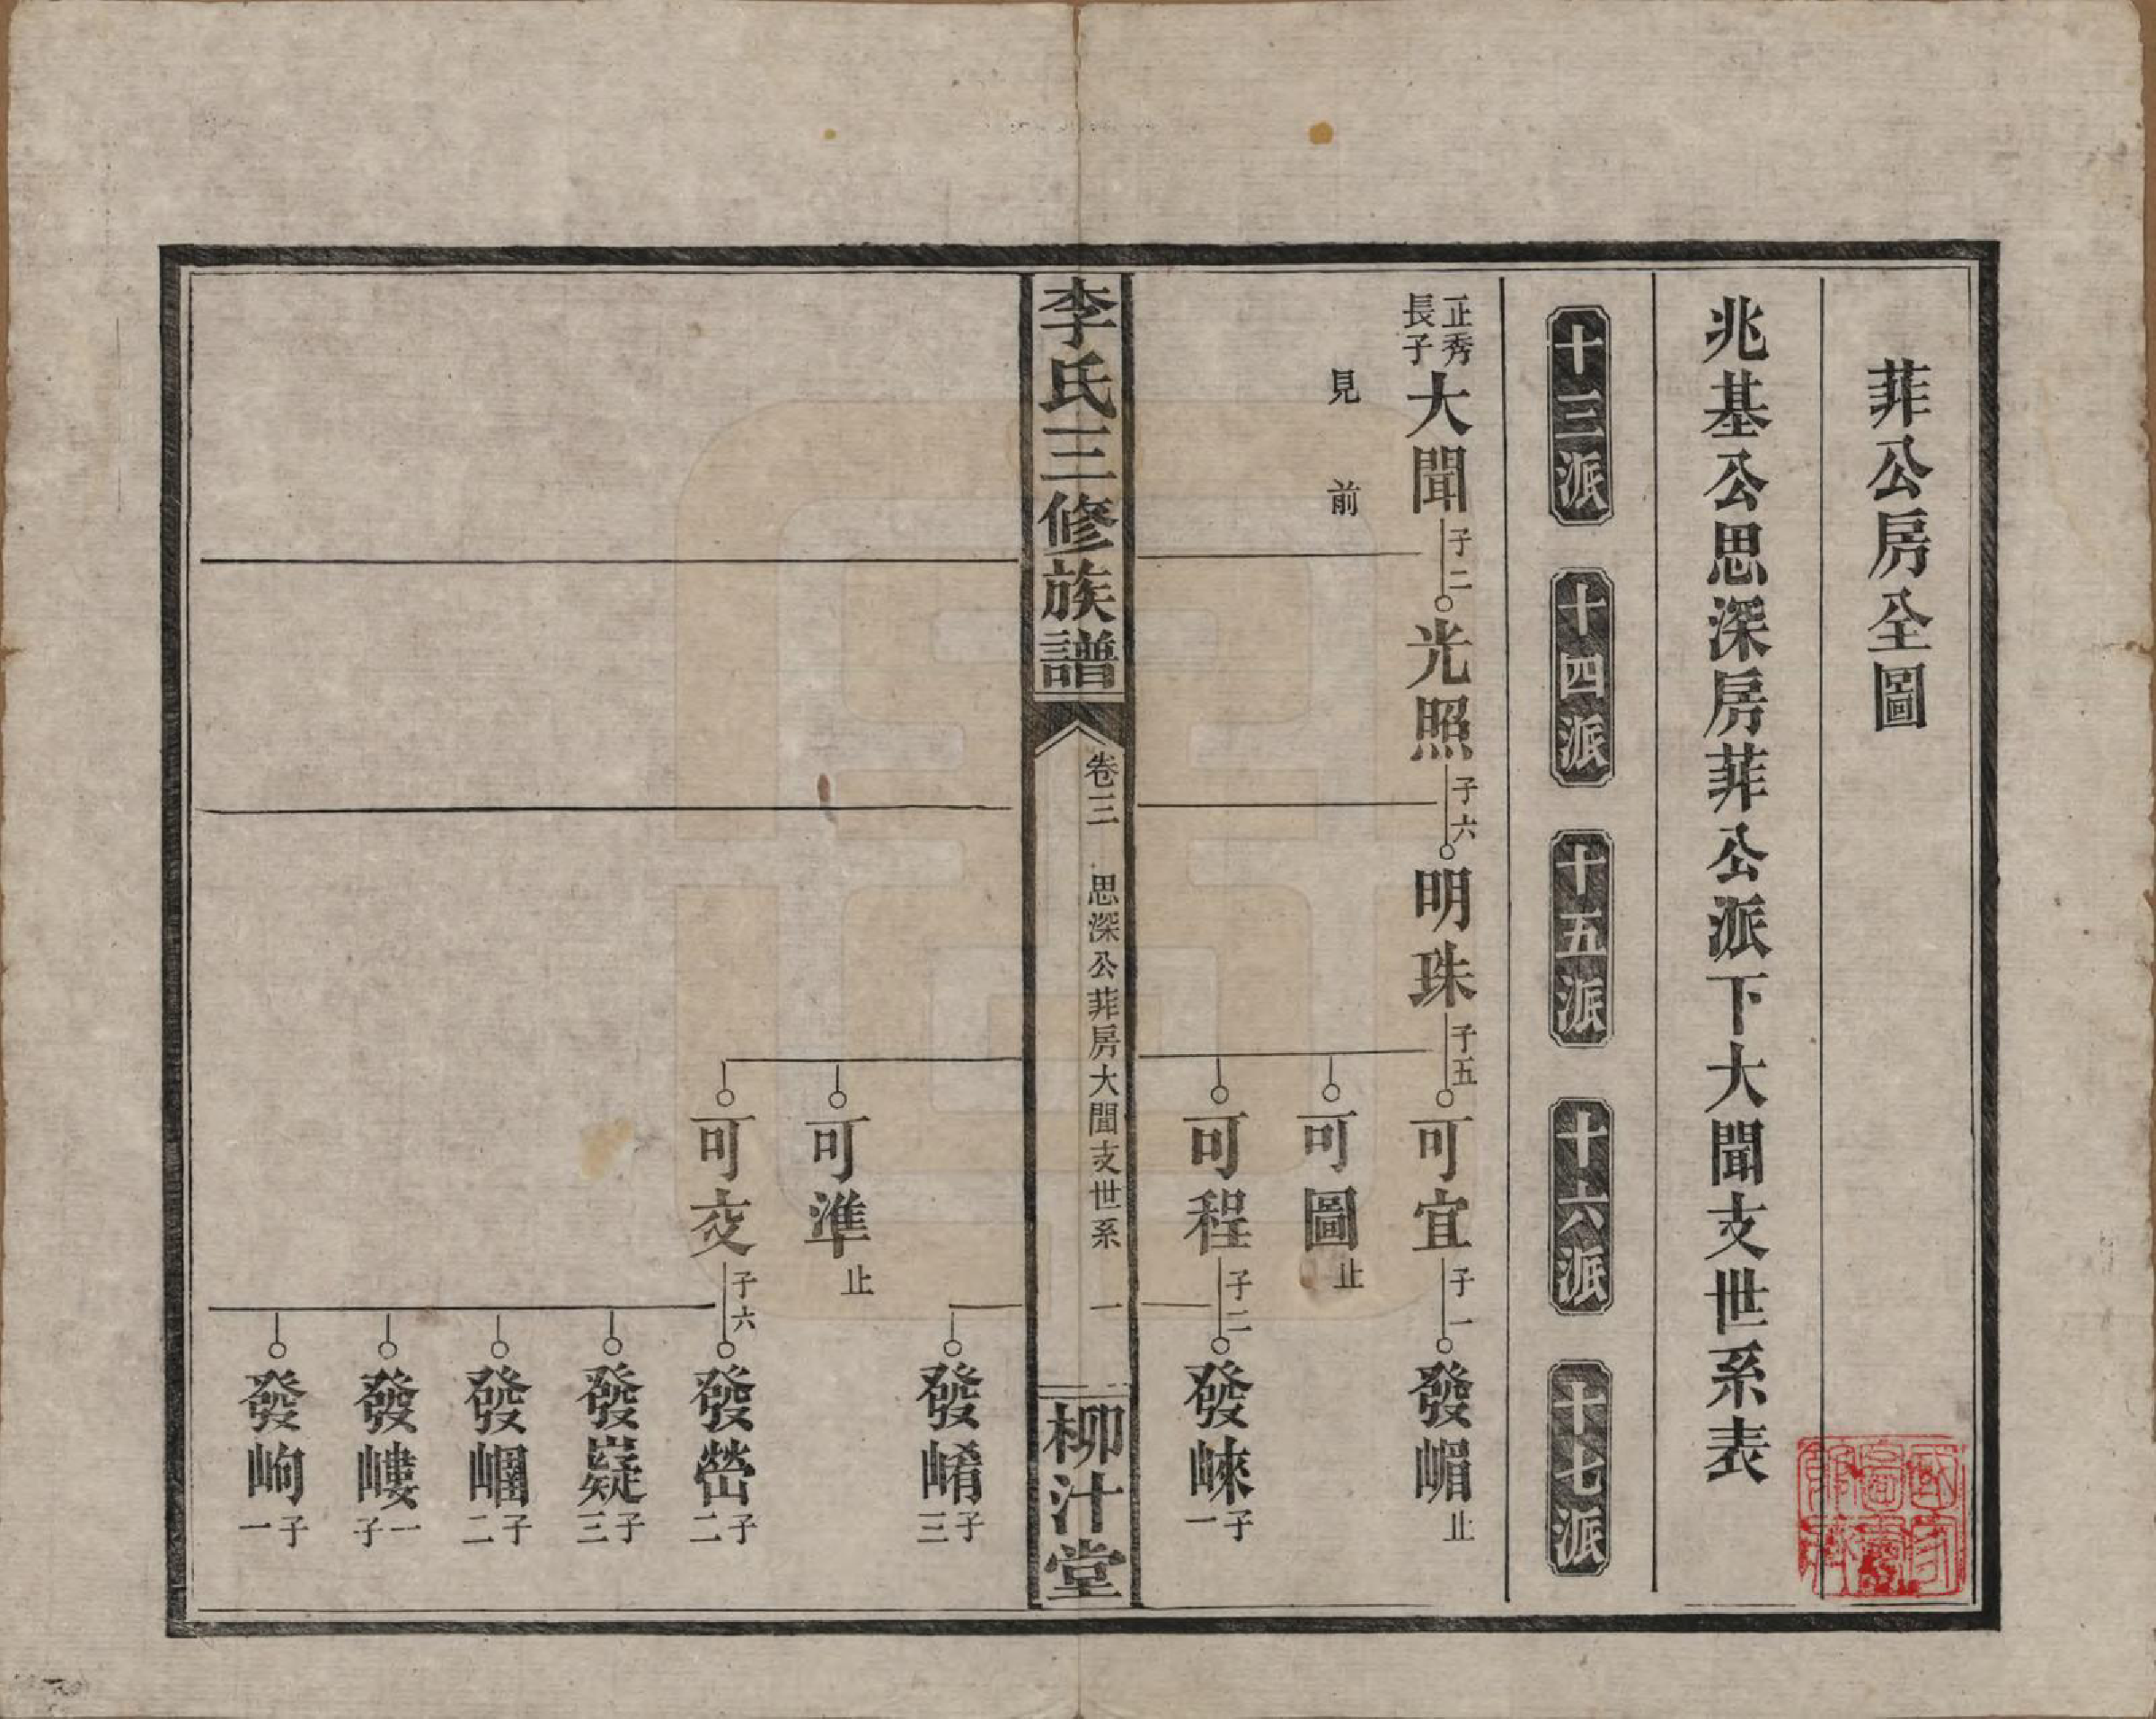 菲公房全圖
兆基公思深房菲公派下大聞支世系表
十三派
十四派
十五派
十六派
十七派
正秀
長子
大聞
子二
光照
子六
明珠
子五
可宜
子一
發嵋
止
見前
可圖
止
可程
子二
發崍
子一
李氏三修族譜
卷三
思深公菲房大聞支世系
一
柳汁堂
發崤
子三
可準
止
可交
子六
發嶨
子二
發嶷
子三
發崓
子二
發嶁
子一
發岣
子一
國家圖書館藏